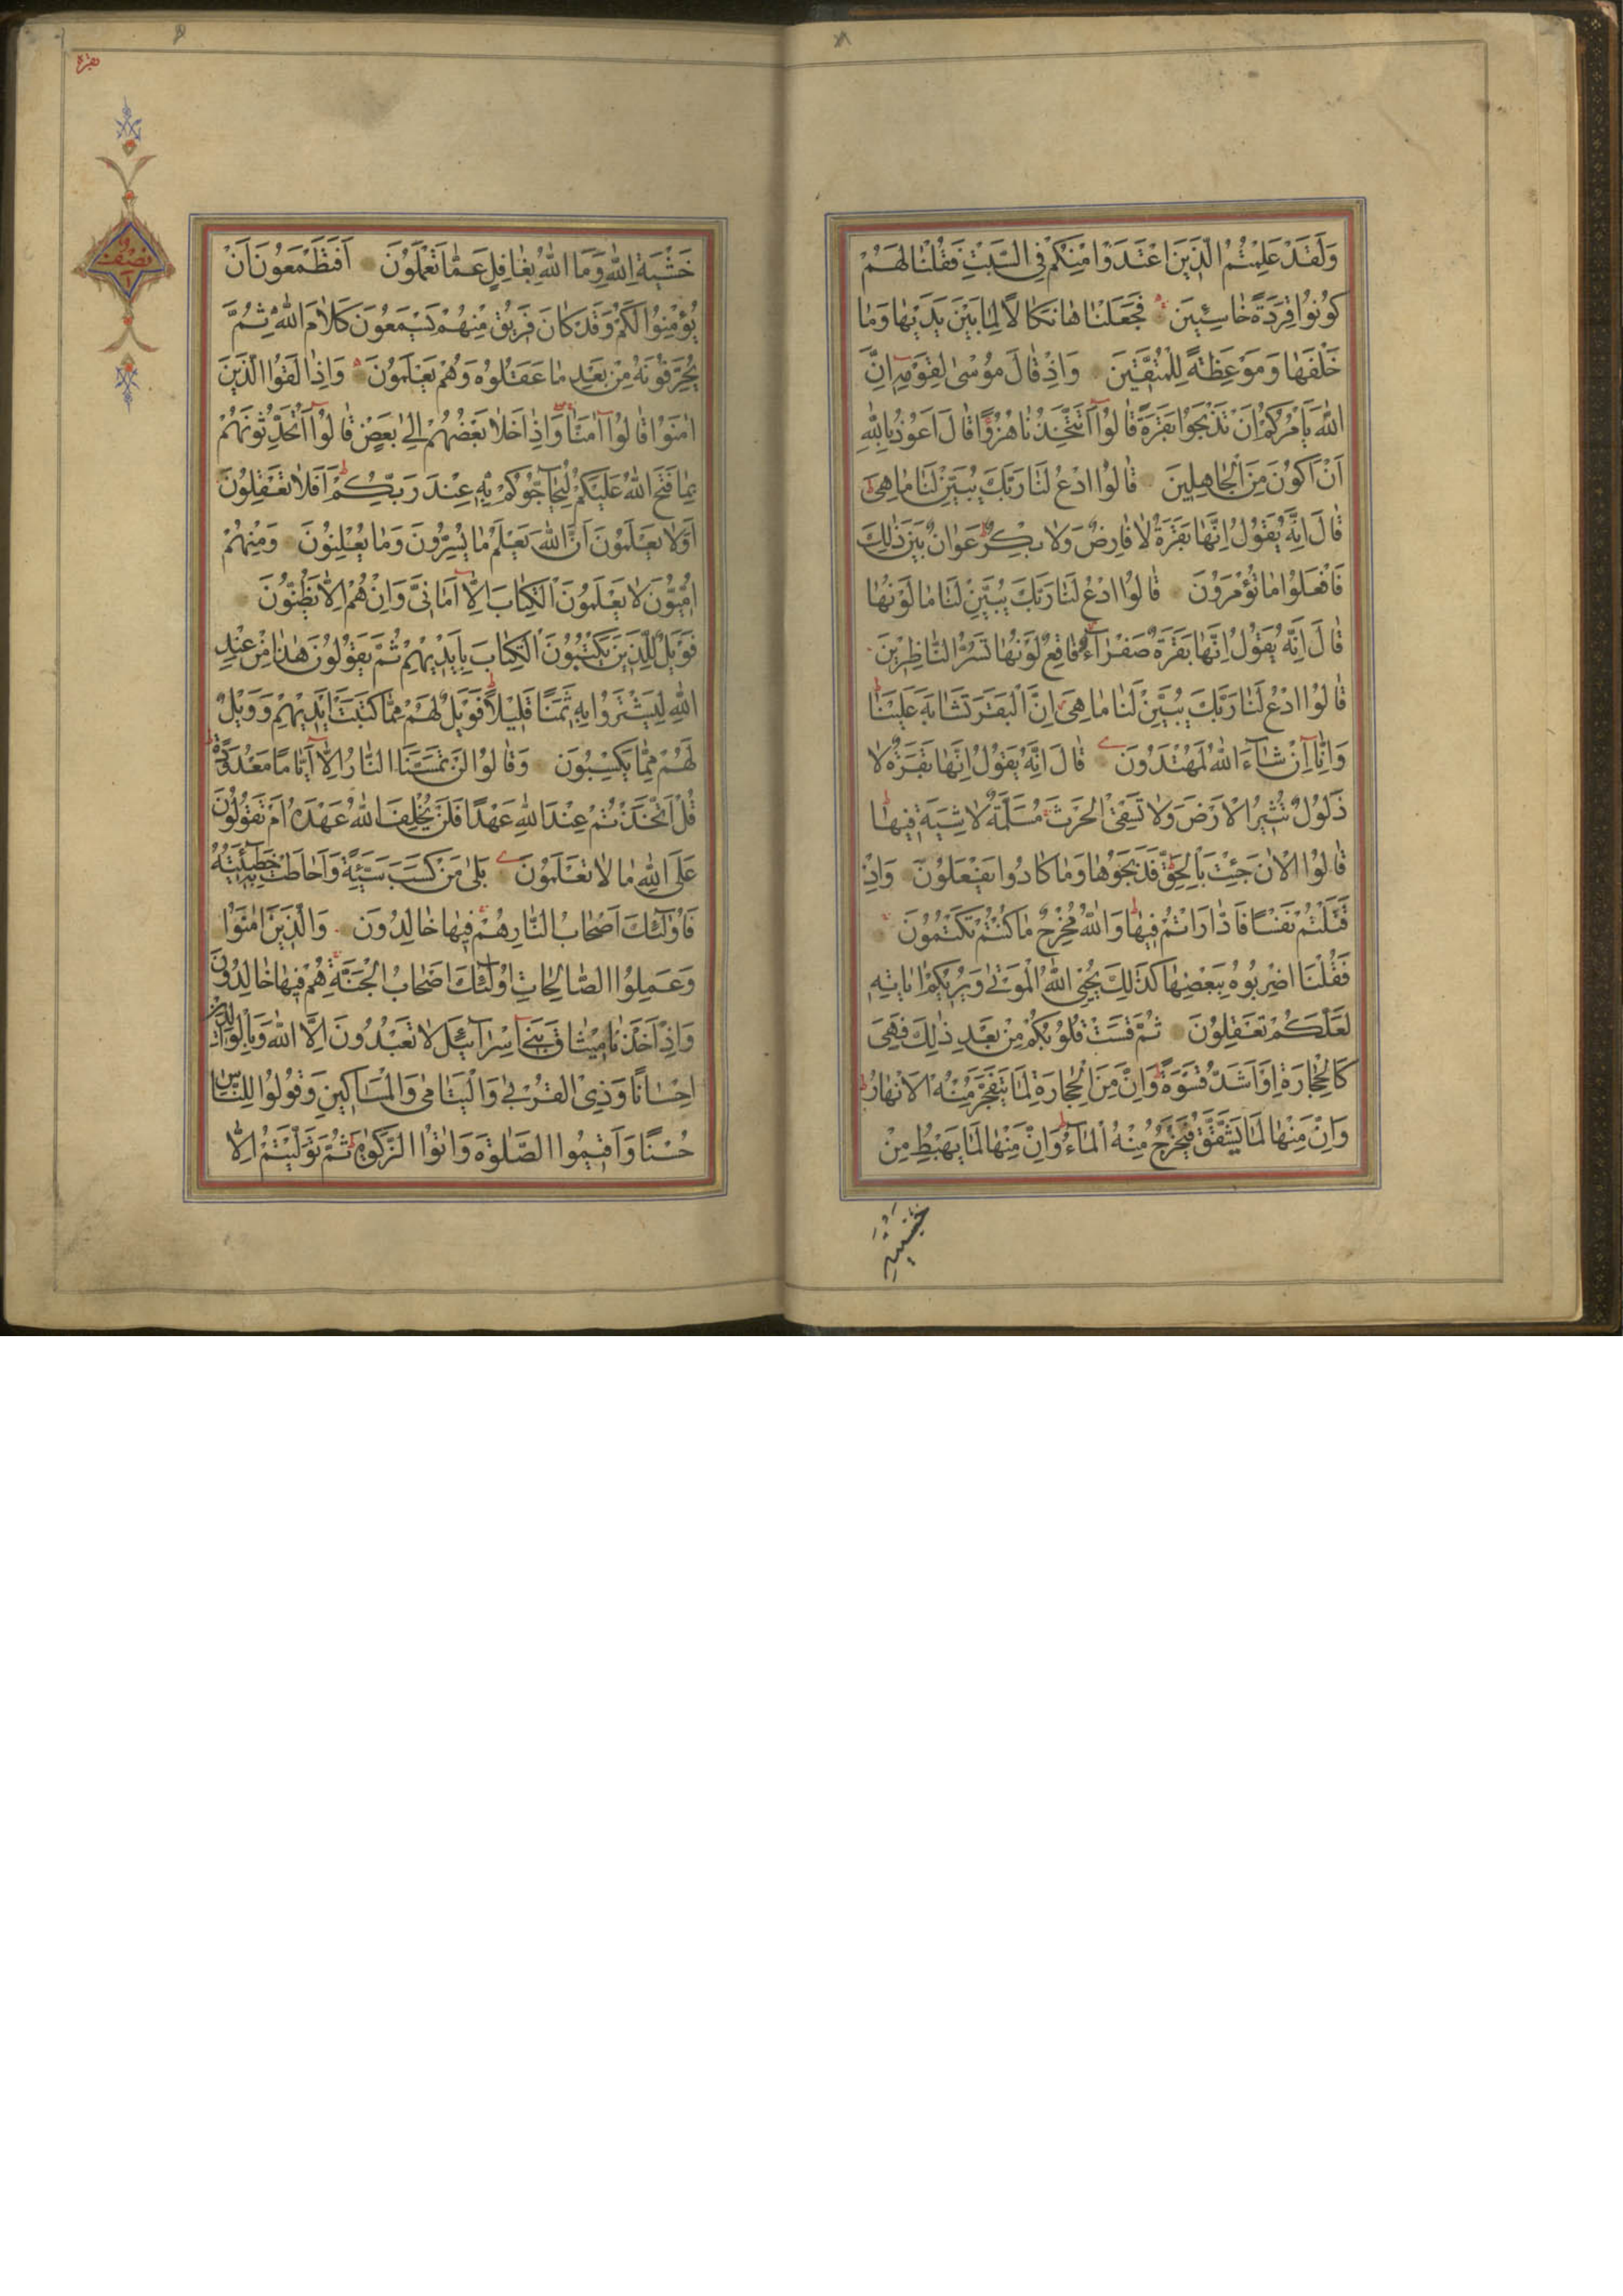 وَلَقَدْ عَلِمْتُمُ الَّذِينَ اعْتَدَوْا مِنْكُمْ فِى السَّبْتِ فَقُلْنَا لَهُمْ
كُونُوا قِرَدَةً خَاسِئِينَ فَجَعَلْنَاهَا نَكَالًا لِمَا بَيْنَ يَدَيْهَا وَمَا
خَلْفَهَا وَمَوْعِظَةً لِلْمُتَّقِينَ وَاِذْ قَالَ مُوسٰى لِقَوْمِهِ اِنَّ
اللّٰهَ يَأْمُرُكُمْ اَنْ تَذْبَحُوا بَقَرَةً قَالُوا اَتَتَّخِذُنَا هُزُوًا قَالَ اَعُوذُ بِاللّٰهِ
اَنْ اَكُونَ مِنَ الْجَاهِلِينَ قَالُوا ادْعُ لَنَا رَبَّكَ يُبَيِّنْ لَنَا مَا هِىَ
قَالَ اِنَّهُ يَقُولُ اِنَّهَا بَقَرَةٌ لَا فَارِضٌ وَلَا بِكْرٌ عَوَانٌ بَيْنَ ذٰلِكَ
فَافْعَلُوا مَا تُؤْمَرُونَ قَالُوا ادْعُ لَنَا رَبَّكَ يُبَيِّنْ لَنَا مَا لَوْنُهَا
قَالَ اِنَّهُ يَقُولُ اِنَّهَا بَقَرَةٌ صَفْرَآءُ فَاقِعٌ لَوْنُهَا تَسُرُّ النَّاظِرِينَ
قَالُوا ادْعُ لَنَا رَبَّكَ يُبَيِّنْ لَنَا مَا هِىَ اِنَّ الْبَقَرَ تَشَابَهَ عَلَيْنَا
وَاِنَّآ اِنْ شَآءَ اللّٰهُ لَمُهْتَدُونَ قَالَ اِنَّهُ يَقُولُ اِنَّهَا بَقَرَةٌ لَا
ذَلُولٌ تُثِيرُ الْاَرْضَ وَلَا تَسْقِى الْحَرْثَ مُسَلَّمَةٌ لَا شِيَةَ فِيهَا
قَالُوا الْاٰنَ جِئْتَ بِالْحَقِّ فَذَبَحُوهَا وَمَا كَادُوا يَفْعَلُونَ وَاِذْ
قَتَلْتُمْ نَفْسًا فَادّٰارَاْتُمْ فِيهَا وَاللّٰهُ مُخْرِجٌ مَا كُنْتُمْ تَكْتُمُونَ
فَقُلْنَا اضْرِبُوهُ بِبَعْضِهَا كَذٰلِكَ يُحْىِ اللّٰهُ الْمَوْتٰى وَيُرِيكُمْ اٰيَاتِهِ
لَعَلَّكُمْ تَعْقِلُونَ ثُمَّ قَسَتْ قُلُوبُكُمْ مِنْ بَعْدِ ذٰلِكَ فَهِىَ
كَالْحِجَارَةِ اَوْ اَشَدُّ قَسْوَةً وَاِنَّ مِنَ الْحِجَارَةِ لَمَا يَتَفَجَّرُ مِنْهُ الْاَنْهَارُ
وَاِنَّ مِنْهَا لَمَا يَشَّقَّقُ فَيَخْرُجُ مِنْهُ الْمَآءُ وَاِنَّ مِنْهَا لَمَا يَهْبِطُ مِنْ
خَشْيَةِ
بقره
نصف
خَشْيَةِ اللّٰهِ وَمَا اللّٰهُ بِغَافِلٍ عَمَّا تَعْمَلُونَ اَفَتَطْمَعُونَ اَنْ
يُؤْمِنُوا لَكُمْ وَقَدْ كَانَ فَرِيقٌ مِنْهُمْ يَسْمَعُونَ كَلَامَ اللّٰهِ ثُمَّ
يُحَرِّفُونَهُ مِنْ بَعْدِ مَا عَقَلُوهُ وَهُمْ يَعْلَمُونَ وَاِذَا لَقُوا الَّذِينَ
اٰمَنُوا قَالُوا اٰمَنَّا وَاِذَا خَلَا بَعْضُهُمْ اِلٰى بَعْضٍ قَالُوا اَتُحَدِّثُونَهُمْ
بِمَا فَتَحَ اللّٰهُ عَلَيْكُمْ لِيُحَآجُّوكُمْ بِهِ عِنْدَ رَبِّكُمْ اَفَلَا تَعْقِلُونَ
اَوَلَا يَعْلَمُونَ اَنَّ اللّٰهَ يَعْلَمُ مَا يُسِرُّونَ وَمَا يُعْلِنُونَ وَمِنْهُمْ
اُمِّيُّونَ لَا يَعْلَمُونَ الْكِتَابَ اِلَّآ اَمَانِىَّ وَاِنْ هُمْ اِلَّا يَظُنُّونَ
فَوَيْلٌ لِلَّذِينَ يَكْتُبُونَ الْكِتَابَ بِاَيْدِيهِمْ ثُمَّ يَقُولُونَ هٰذَا مِنْ عِنْدِ
اللّٰهِ لِيَشْتَرُوا بِهِ ثَمَنًا قَلِيلًا فَوَيْلٌ لَهُمْ مِمَّا كَتَبَتْ اَيْدِيهِمْ وَوَيْلٌ
لَهُمْ مِمَّا يَكْسِبُونَ وَقَالُوا لَنْ تَمَسَّنَا النَّارُ اِلَّآ اَيَّامًا مَعْدُودَةً
قُلْ اَتَّخَذْتُمْ عِنْدَ اللّٰهِ عَهْدًا فَلَنْ يُخْلِفَ اللّٰهُ عَهْدَهُ اَمْ تَقُولُونَ
عَلَى اللّٰهِ مَا لَا تَعْلَمُونَ بَلٰى مَنْ كَسَبَ سَيِّئَةً وَاَحَاطَتْ بِهِ خَطِٓيئَتُهُ
فَاُولٰٓئِكَ اَصْحَابُ النَّارِ هُمْ فِيهَا خَالِدُونَ وَالَّذِينَ اٰمَنُوا
وَعَمِلُوا الصَّالِحَاتِ اُولٰٓئِكَ اَصْحَابُ الْجَنَّةِ هُمْ فِيهَا خَالِدُونَ
وَاِذْ اَخَذْنَا مِيثَاقَ بَنِىٓ اِسْرَآئِلَ لَا تَعْبُدُونَ اِلَّا اللّٰهَ وَبِالْوَالِدَيْنِ
اِحْسَانًا وَذِى الْقُرْبٰى وَالْيَتَامٰى وَالْمَسَاكِينِ وَقُولُوا لِلنَّاسِ
حُسْنًا وَاَقِيمُوا الصَّلٰوةَ وَاٰتُوا الزَّكٰوةَ ثُمَّ تَوَلَّيْتُمْ اِلَّا